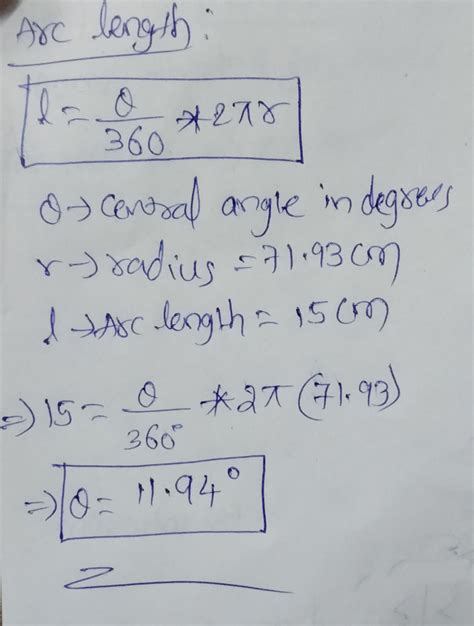 Arc length:
l = θ/360 * 2πr
θ → central angle in degrees
r → radius = 71.93 cm
l → Arc length = 15 cm
⇒ 15 = θ/360° * 2π (71.93)
⇒ θ = 11.94°